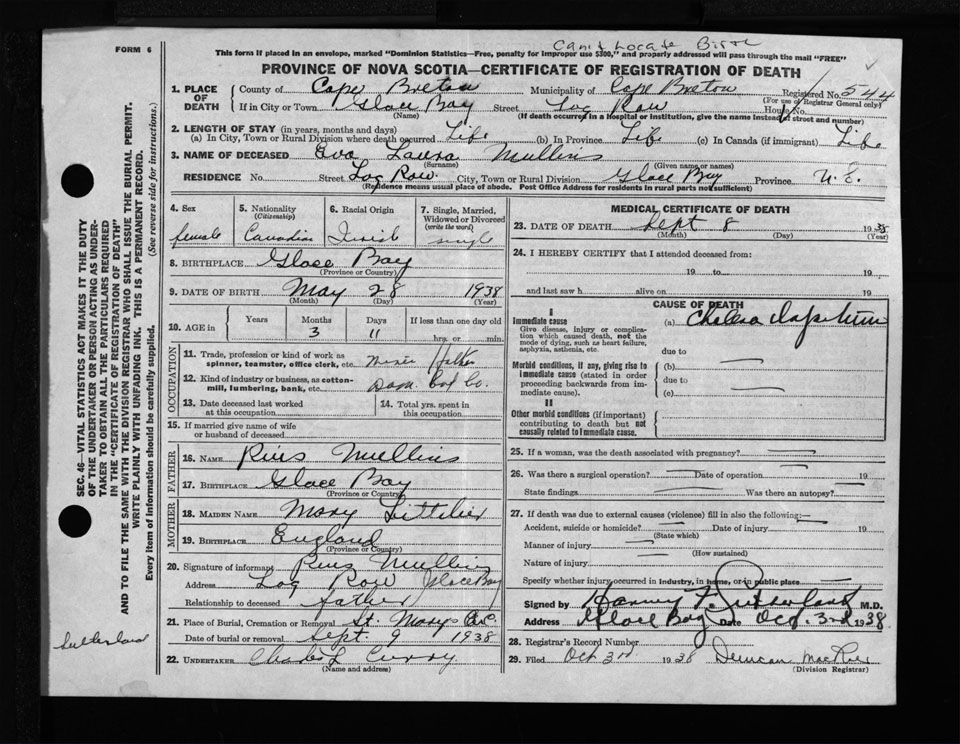 Can't Locate Birth
FORM 6
This form if placed in an envelope, marked "Dominion Statistics—Free, penalty for improper use $300," and properly addressed will pass through the mail "FREE"
PROVINCE OF NOVA SCOTIA—CERTIFICATE OF REGISTRATION OF DEATH
SEC. 46—VITAL STATISTICS ACT MAKES IT THE DUTY
OF THE UNDERTAKER OR PERSON ACTING AS UNDER-
TAKER TO OBTAIN ALL THE PARTICULARS REQUIRED
IN THE "CERTIFICATE OF REGISTRATION OF DEATH"
AND TO FILE THE SAME WITH THE DIVISION REGISTRAR WHO SHALL ISSUE THE BURIAL PERMIT.
WRITE PLAINLY WITH UNFADING INK. THIS IS A PERMANENT RECORD.
Every item of information should be carefully supplied. (See reverse side for instructions.)
Sutherland
1. PLACE OF DEATH
County of Cape Breton Municipality of Cape Breton Registered No. 544
(For use of Registrar General only)
If in City or Town Glace Bay Street Log Row House No.
(Name) (If death occurred in a Hospital or institution, give the name instead of street and number)
2. LENGTH OF STAY (in years, months and days)
(a) In City, Town or Rural Division where death occurred Life (b) In Province Life (c) In Canada (if immigrant) Life
3. NAME OF DECEASED Eva Laura Mullins
(Surname) (Given name or names)
RESIDENCE No. Street Log Row City, Town or Rural Division Glace Bay Province N. S.
(Residence means usual place of abode. Post Office Address for residents in rural parts not sufficient)
4. Sex
female
5. Nationality
(Citizenship)
Canadian
6. Racial Origin
Irish
7. Single, Married,
Widowed or Divorced
(write the word)
single
8. BIRTHPLACE Glace Bay
(Province or Country)
9. DATE OF BIRTH May 28 1938
(Month) (Day) (Year)
10. AGE in
Years
Months
3
Days
11
If less than one day old
hrs. or min.
OCCUPATION
11. Trade, profession or kind of work as
spinner, teamster, office clerk, etc. miner Father
12. Kind of industry or business, as cotton-
mill, lumbering, bank, etc. Dom. Coal Co.
13. Date deceased last worked
at this occupation
14. Total yrs. spent in
this occupation
15. If married give name of wife
or husband of deceased
FATHER
16. NAME Mullins
17. BIRTHPLACE Glace Bay
(Province or Country)
MOTHER
18. MAIDEN NAME Mary
19. BIRTHPLACE England
(Province or Country)
20. Signature of informant Mullins
Address Log Row Glace Bay
Relationship to deceased father
21. Place of Burial, Cremation or Removal St. Marys
Date of burial or removal Sept 9 1938
22. UNDERTAKER Charles L Curry
(Name and address)
MEDICAL CERTIFICATE OF DEATH
23. DATE OF DEATH Sept 8 1938
(Month) (Day) (Year)
24. I HEREBY CERTIFY that I attended deceased from:
19 to 19
and last saw h alive on 19
CAUSE OF DEATH
I
Immediate cause
Give disease, injury or complica-
tion which caused death, not the
mode of dying, such as heart failure,
asphyxia, asthenia, etc.
(a) Cholera Infantum
due to
Morbid conditions, if any, giving rise to
immediate cause (stated in order
proceeding backwards from im-
mediate cause).
(b)
due to
(c)
II
Other morbid conditions (if important)
contributing to death but not
causally related to immediate cause.
25. If a woman, was the death associated with pregnancy?
26. Was there a surgical operation? Date of operation 19
State findings Was there an autopsy?
27. If death was due to external causes (violence) fill in also the following:
Accident, suicide or homicide? Date of injury 19
(State which)
Manner of injury
(How sustained)
Nature of injury
Specify whether injury occurred in industry, in home, or in public place
Signed by Harvey F. Sutherland M.D.
Address Glace Bay Date Oct. 3rd 1938
28. Registrar's Record Number
29. Filed Oct 3rd 1938 Duncan MacRae
(Division Registrar)